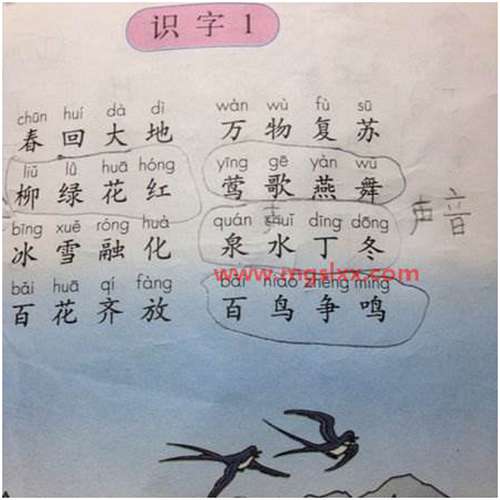 识字1
chūn huí dà dì wàn wù fù sū
春回大地 万物复苏
liǔ lǜ huā hóng yīng gē yàn wǔ
柳绿花红 莺歌燕舞
bīng xuě róng huà quán shuǐ dīng dōng
冰雪融化 泉水丁冬
声音
www.mgslxx.com
bǎi huā qí fàng bǎi niǎo zhēng míng
百花齐放 百鸟争鸣